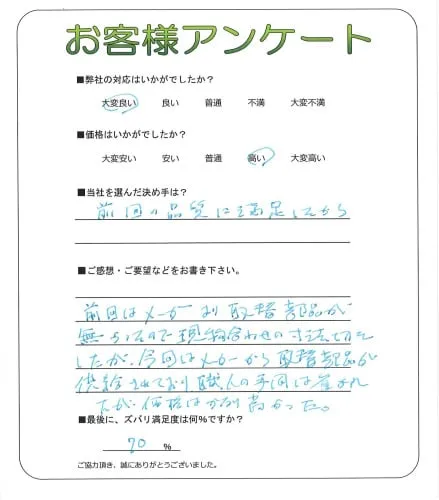 お客様アンケート
■弊社の対応はいかがでしたか?
大変良い 良い 普通 不満 大変不満
■価格はいかがでしたか?
大変安い 安い 普通 高い 大変高い
■当社を選んだ決め手は?
前回の品質に満足したから
■ご感想・ご要望などをお書き下さい。
前回はメーカーより取替部品が
無かったので現物合わせの寸法で
したが、今回はメーカーから取替部品が
供給されており職人の手間は
たが、価格はかなり高かった。
■最後に、ズバリ満足度は何%ですか?
70 %
ご協力頂き、誠にありがとうございました。